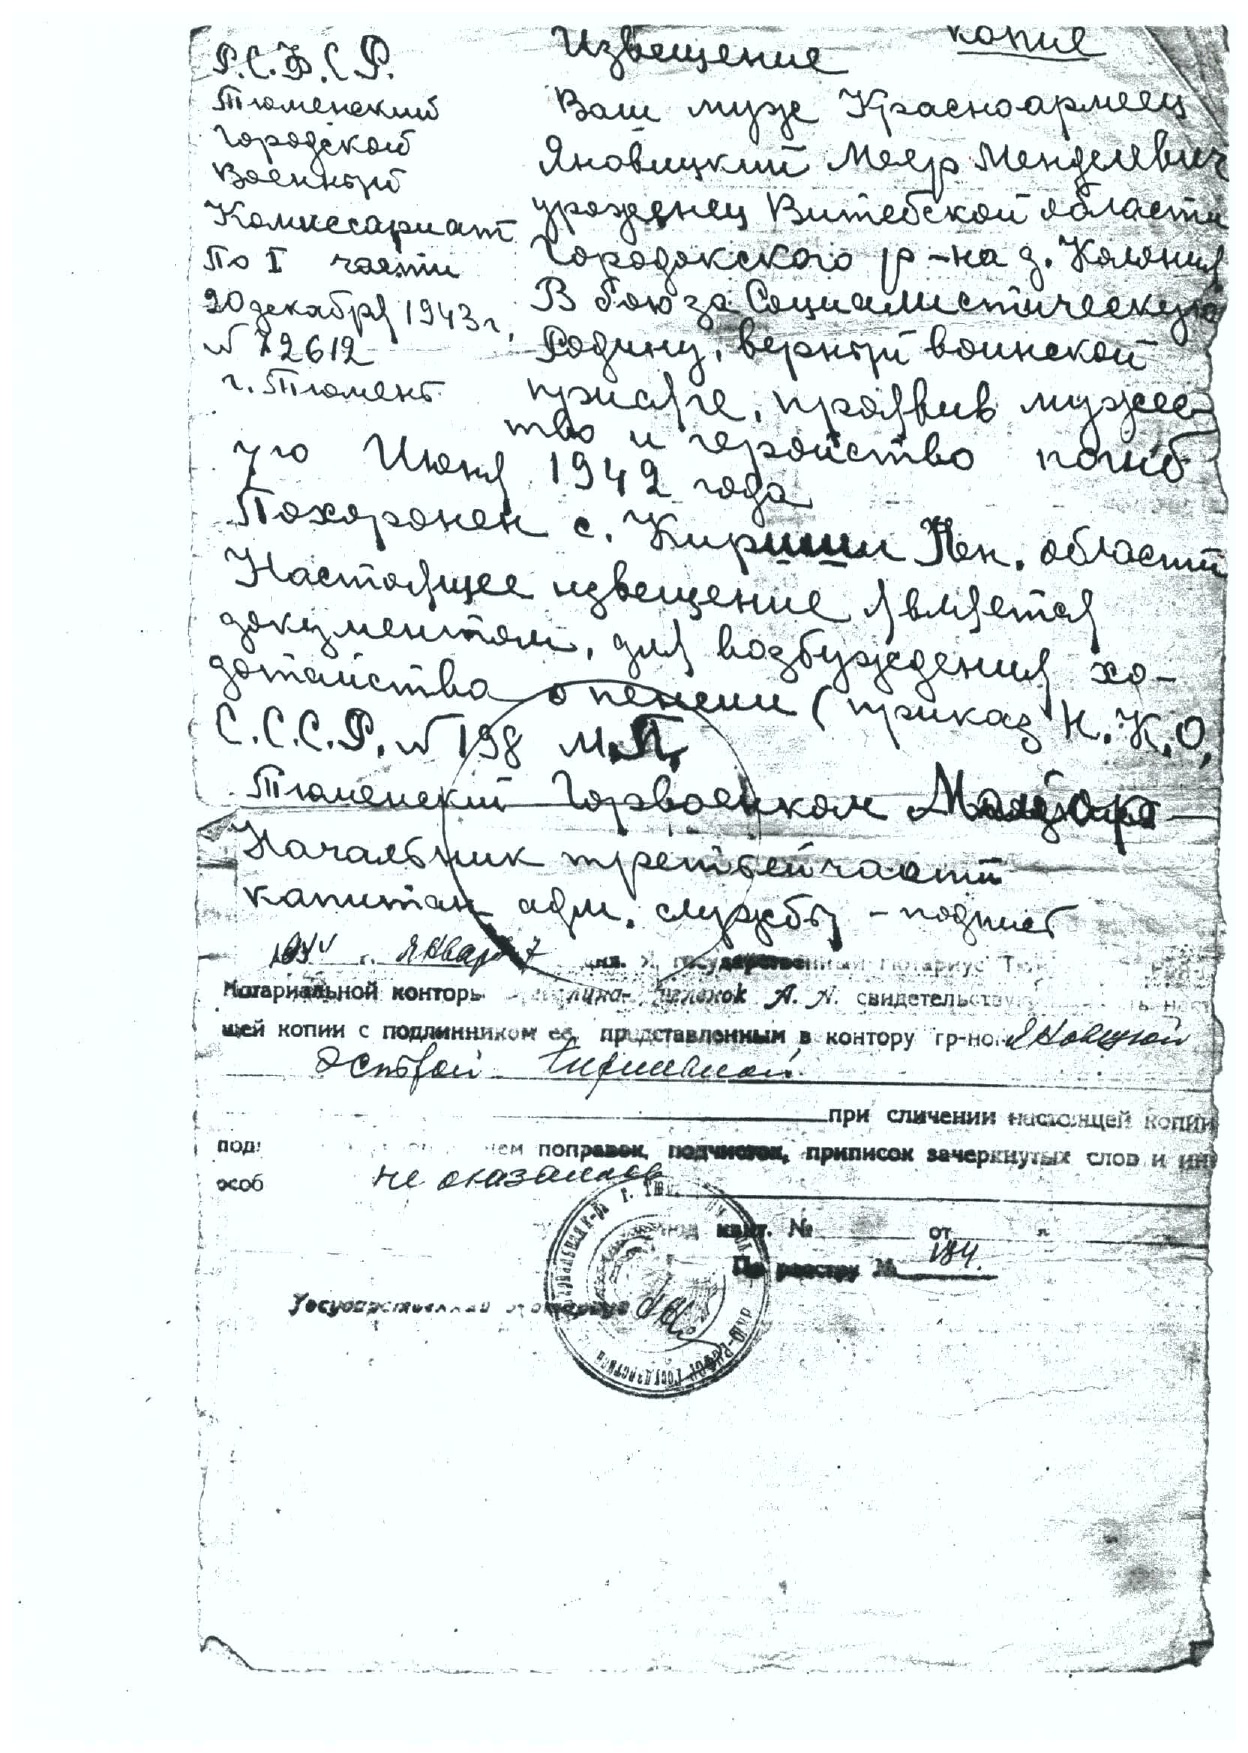 копие
Извещение
Р.С.Ф.С.Р.
Тюменский
Городской
Военный
Комиссариат
По I части
20 декабря 1943 г.
№ 12612
г. Тюмень
Ваш муж Красноармеец
Яновицкий Меер Менделевич
урожденец Витебской области
Городокского р-на д. Колония
В бою за Социалистическую
Родину, верный воинской
присяге, проявив мужес
тво и геройство погиб
7го Июня 1942 года
Похоронен с. Кириши Лен. области
Настоящее извещение является
документом, для возбуждения хо-
датайства о пенсии (приказ Н.К.О.
С.С.С.Р. № 198 М.П.
Тюменский Горвоенком Майор
Начальник третьей части
капитан адм. службы - подпись
января 7 дня. Я государственный нотариус
Нотариальной конторы А. Н. свидетельствую
щей копии с подлинником ее, представленным в контору гр-ной Яновицкой
Эсфирой
при сличении настоящей копии
поправок, подчисток, приписок зачеркнутых слов и
особ не оказалось
квит. № от
По реестру № 184.
Государственный нотариус